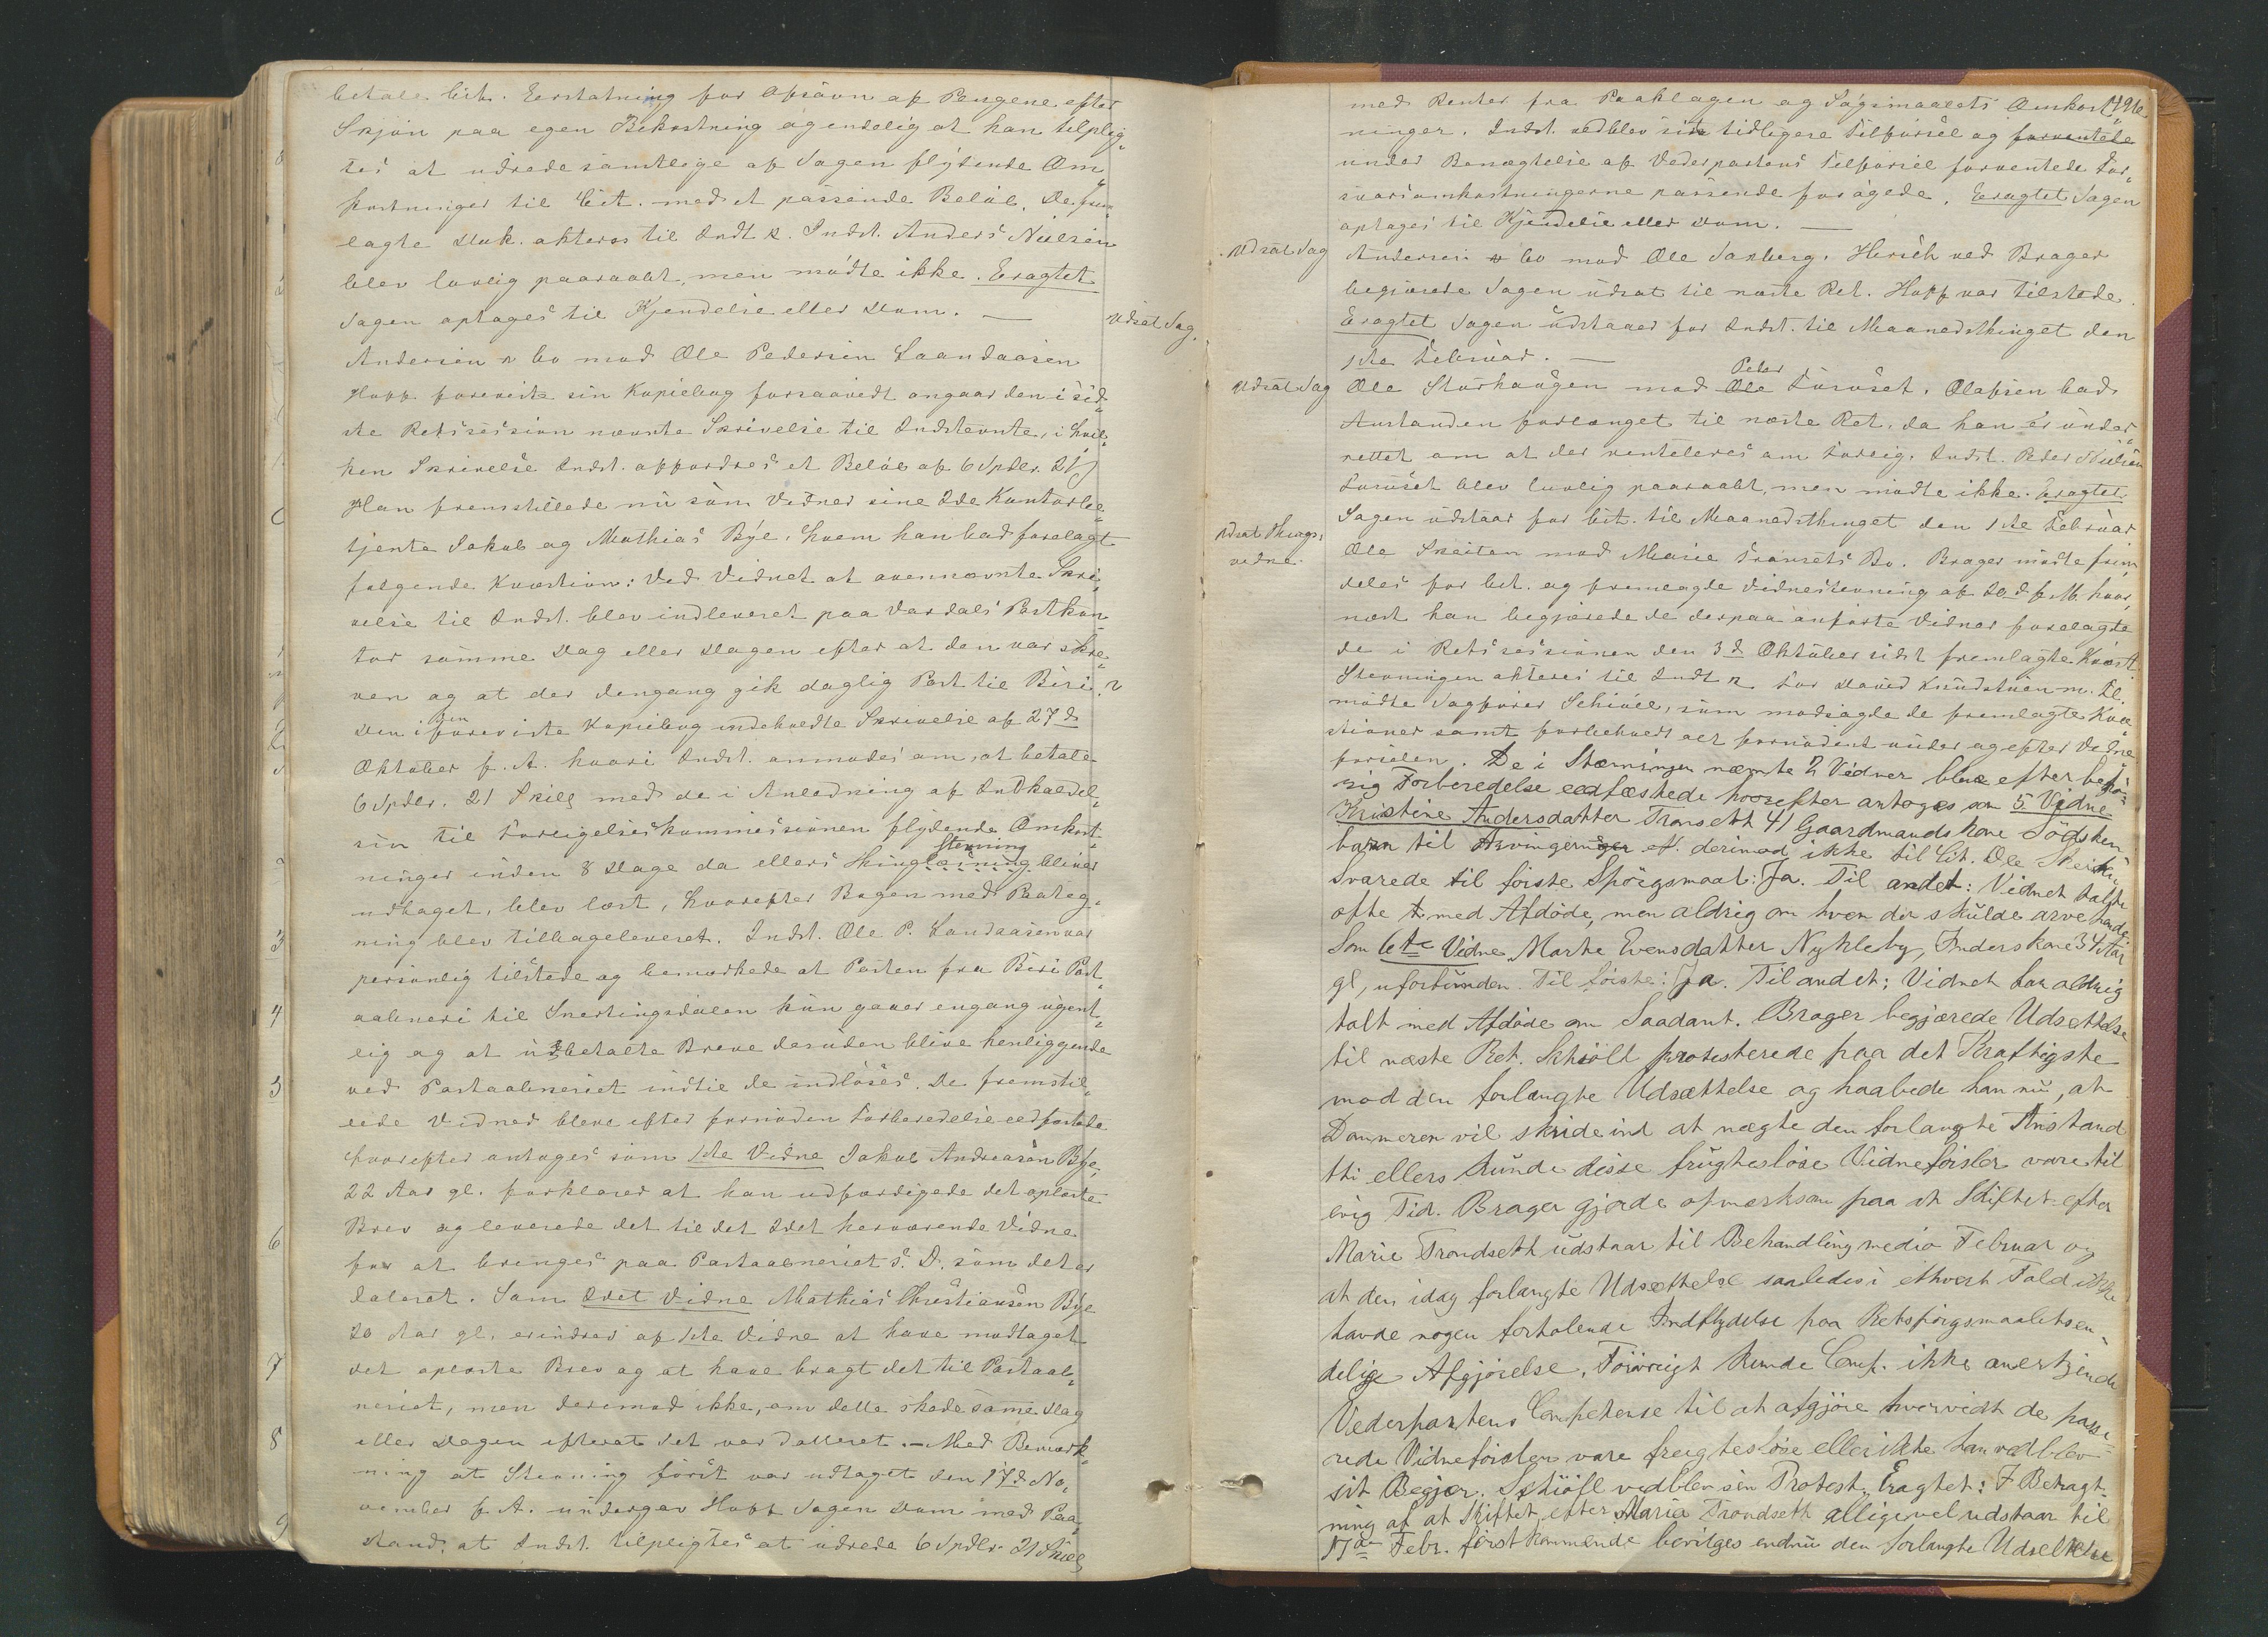 betale Cit. Erstatning for Afsavn af Pengene efter
Skjøn paa egen Bekostning og endelig at han tilplig-
tes at udrede samtlige af Sagen flydende Om-
kostninger til Cit. med et passende Beløb. De frem-
lagte Dok. akteres til Indt R. Indst. Anders Nielsen
blev lovlig paaraabt, men mødte ikke. Eragtet
Sagen optages til Kjendelse eller Dom. —
Udsat Sag.
Andersen & Co mod Ole Pedersen Laandaasen
Hopp foreviste sin Kopiebog forsaavidt angaar den i sid-
ste Retssession nævnte Skrivelse til Indstevnte, i hvil-
ken Skrivelse Indst. affordres et Beløb af 6 Spdlr. 21 ß
Han fremstillede nu som Vidner sine 2de Kontorbe-
tjente Jakob og Mathias Bye, hvem han bad forelagt
følgende Kvæstion: Ved Vidnet at ovennævnte Skri-
velse til Indst. blev indleveret paa Vardals Postkon-
tor samme Dag eller Dagen efter at den var skre-
ven og at der dengang gik daglig Post til Biri?
Den i den foreviste Kopiebog indeholdte Skrivelse af 27d
Oktober f. A. hvori Indst. anmodes om, at betale
6 Spdlr. 21 Skill med de i Anledning af Indkaldel-
sen til Forligelseskommissionen flydende Omkost-
ninger inden 8 Dage da ellers Thinglæsning stevning bliver
udtaget, blev læst, hvorefter Bogen med Paateg-
ning blev tilbageleveret. Indst. Ole P. Landaasen var
personlig tilstede og bemærkede at Posten fra Biri Post-
aabneri til Snertingsdalen kun gaaer engang ugent-
lig og at ubetalte Breve desuden blive henliggende
ved Postaabneriet indtil de indløses. De fremstil-
lede Vidner bleve efter fornøden Forberedelse eedfæstede
hvorefter antoges som 1ste Vidne Jakob Andreasen Bye,
22 Aar gl. forklarer at han udfærdigede det oplæste
Brev og leverede det til det 2det herværende Vidne
for at bringes paa Postaabneriet s. D. som det er
dateret. Som 2det Vidne Mathias Christiansen Bye
20 Aar gl. erindrer af 1ste Vidne at have modtaget
det oplæste Brev og at have bragt det til Postaab-
neriet, men derimod ikke, om dette skede samme Dag
eller Dagen efterat det var datteret. — Med Bemærk-
ning at Stevning først var udtaget den 17d No-
vember f. A. undergav Hopp Sagen Dom med Paa-
stand, at Indst. tilpligtes at udrede 6 Spdlr. 21 Skill
med Renter fra Paaklagen og Søgsmaalets Omkost-
ninger. Indst. vedblev sin tidligere Tilførsel og forventede
under Benægtelse af Vederpartens Tilførsel forventede For-
svarsomkostningerne passende forøgede. Eragtet Sagen
optages til Kjendelse eller Dom. —
Udsat Sag
Andersen & Co mod Ole Saxberg. Hersch ved Brager
begjærede Sagen udsat til næste Ret. Hopp var tilstede.
Eragtet Sagen udstaaer for Indst. til Maanedsthinget den
1ste Februar. —
Udsat Sag
Ole Storhaugen mod Ole Peder Furuset. Olafsen bad
Anstanden forlænget til næste Ret, da han er under-
rettet om at der ventileres om Forlig. Indst. Peder Nielsen
Furuset blev lovlig paaraabt, men mødte ikke. Eragtet
Sagen udstaar for Cit. til Maanedsthinget den 1ste Februar.
Udsat Things-
vidne.
Ole Skeiten mod Marie Transets Bo. Brager mødte frem-
deles for Cit. og fremlagde Vidnestevning af 20d f. M. hvor-
næst han begjærede de derpaa anførte Vidner forelagte
de i Retssessionen den 3d Oktober sidst fremlagte Kvæst.
Stevningen akteres til Indt R. For David Kundstuen m. Fl.
mødte Sagfører Schiøll, som modsagde de fremlagte Kvæ-
stioner samt forbeholdt alt fornødent under og efter Vidne-
førselen. De i Stævningen nævnte 2 Vidner bleve efter behø-
rig Forberedelse eedfæstede hvorefter antoges som 5. Vidne
Kristine Andersdatter Transeth 41 Gaardmandskone Södsken-
barn til Arvingerne ef. derimod ikke til Cit. Ole Skeiten,
Svarede til første Spörgsmaal: Ja. Til andet: Vidnet talte
ofte med Afdöde, men aldrig om hvem der skulde arve hende.
Som 6te Vidne Marthe Evensdatter Nykleby, Inderskone 34 Aar
gl, uforbunden. Til förste: Ja. Til andet: Vidnet har aldrig
talt med Afdöde om Saadant. Brager begjærede Udsættelse
til næste Ret. Schiöll protesterede paa det Kraftigste
mod den forlangte Udsættelse og haabede han nu, at
Dommeren vil skride ind at nægte den forlangte Anstand
thi ellers kunde disse frugteslöse Vidneförsler vare til
evig Tid. Brager gjorde opmærksom paa at Skiftet efter
Marie Trondseth udstaar til Behandling medio Februar og
at den idag forlangte Udsættelse saaledes i ethvert Fald ikke
havde nogen forhalende Indflydelse paa Retsspörgsmaalets en-
delige Afgjörelse. Forövrigt kunde Comp. ikke anerkjende
Vederpartens Competense til at afgjöre hvorvidt de passe-
rede Vidneförsler vare frugteslöse eller ikke han vedblev
sit Begjær. Schiöll vedblev sin Protest. Eragtet: I Betragt-
ning af at Skiftet efter Maria Trondseth alligevel udstaar til
17de Febr. förstkommende bevilges endnu den forlangte Udsættelse